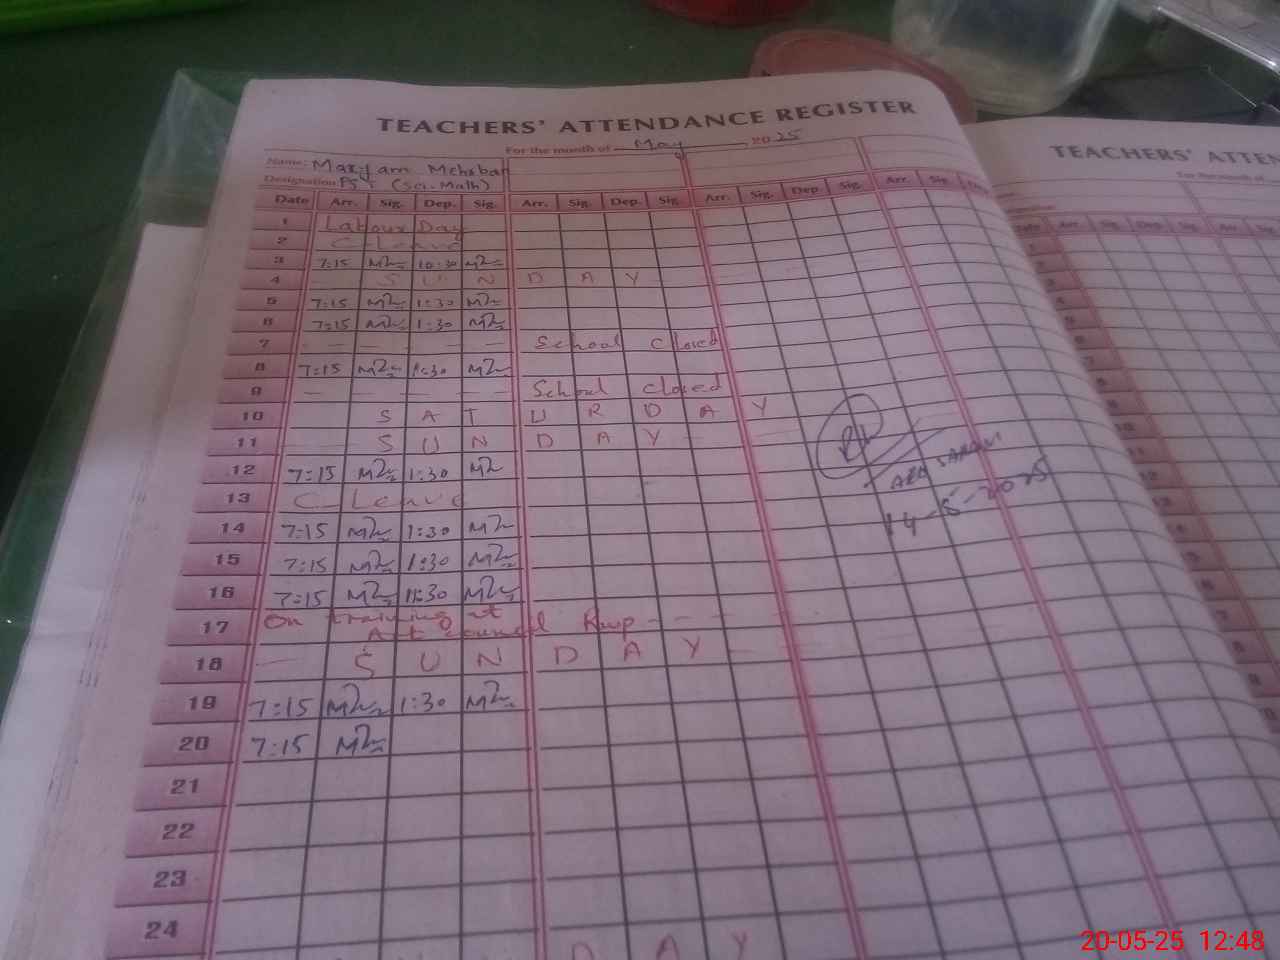 TEACHERS' ATTENDANCE REGISTER
For the month of May 2025
Name: Maryam Mehrban
Designation PST (Sci-Math)
Date Arr. Sig. Dep. Sig. Arr. Sig. Dep. Sig. Arr. Sig. Dep. Sig. Arr. Sig.
1 Labour Day
2 C-Leave
3 7:15 10:30
4 S U N D A Y
5 7:15 1:30
6 7:15 1:30
7 School closed
8 7:15 1:30
9 School closed
10 S A T U R D A Y
11 S U N D A Y
12 7:15 1:30
13 C Leave
14 7:15 1:30
15 7:15 1:30
16 7:15 11:30
17 On training at
Art council Rwp
18 S U N D A Y
19 7:15 1:30
20 7:15
21
22
23
24
D A Y
14-5-2025
TEACHERS' ATTEN
For the month of
Arr. Sig. Dep. Sig. Arr. Sig.
20-05-25 12:48